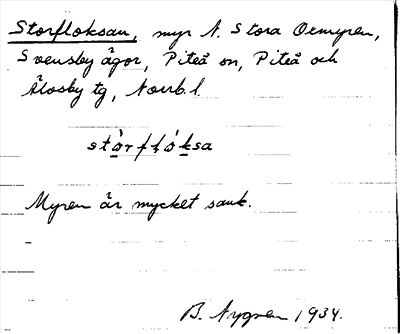 Storfloksan, myr N. Stora Ormyren,
Svensby ägor, Piteå sn, Piteå och
Älvsby tg, Norrb. l.
stò̱rflóḵsa
Myren är mycket sank.
B. Nygren 1934.